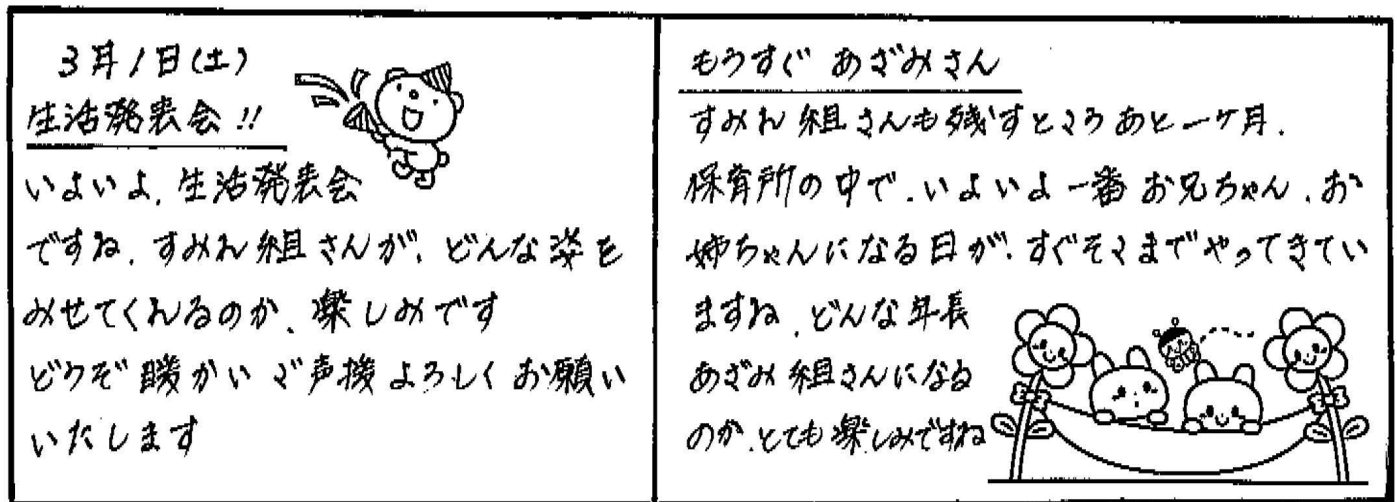 3月1日(土)
生活発表会!!
いよいよ、生活発表会
ですね、すみれ組さんが、どんな姿を
みせてくれるのか、楽しみです
どうぞ暖かいご声援よろしくお願い
いたします
もうすぐ あざみさん
すみれ組さんも残すところあと一ヶ月、
保育所の中で、いよいよ一番お兄ちゃん、お
姉ちゃんになる日が、すぐそこまでやってきてい
ますね、どんな年長
あざみ組さんになる
のか、とても楽しみですね